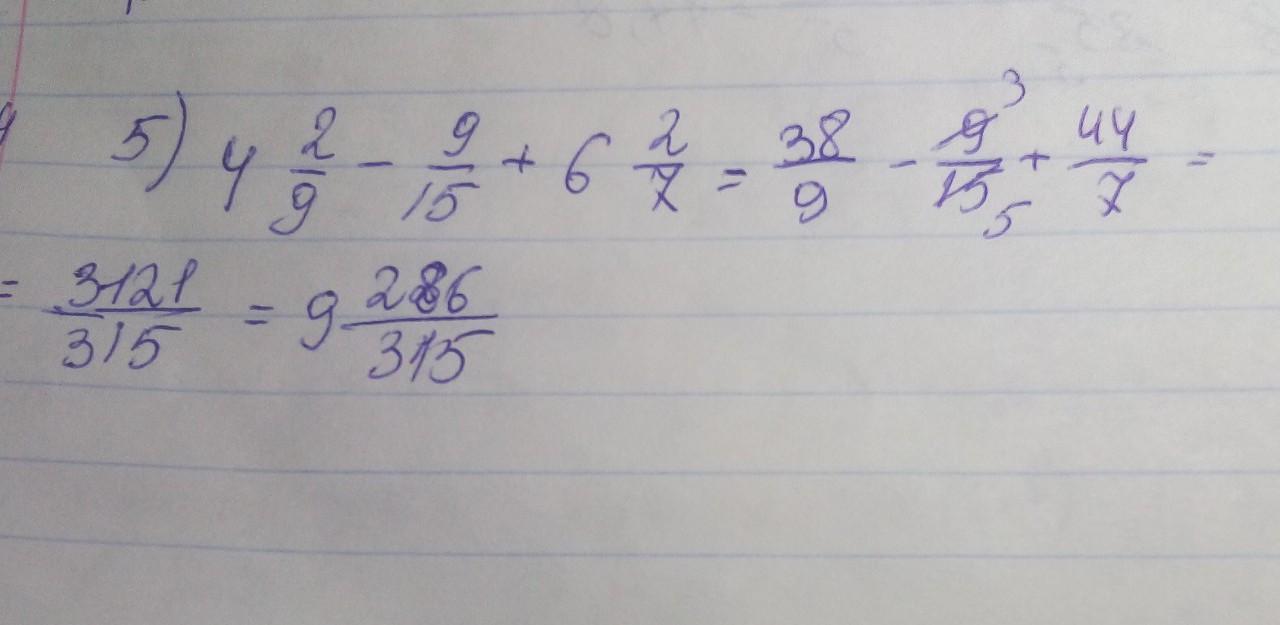 5) 4 2/9 - 9/15 + 6 2/7 = 38/9 - 9 3/15 5 + 44/7 =
= 3121/315 = 9 286/315